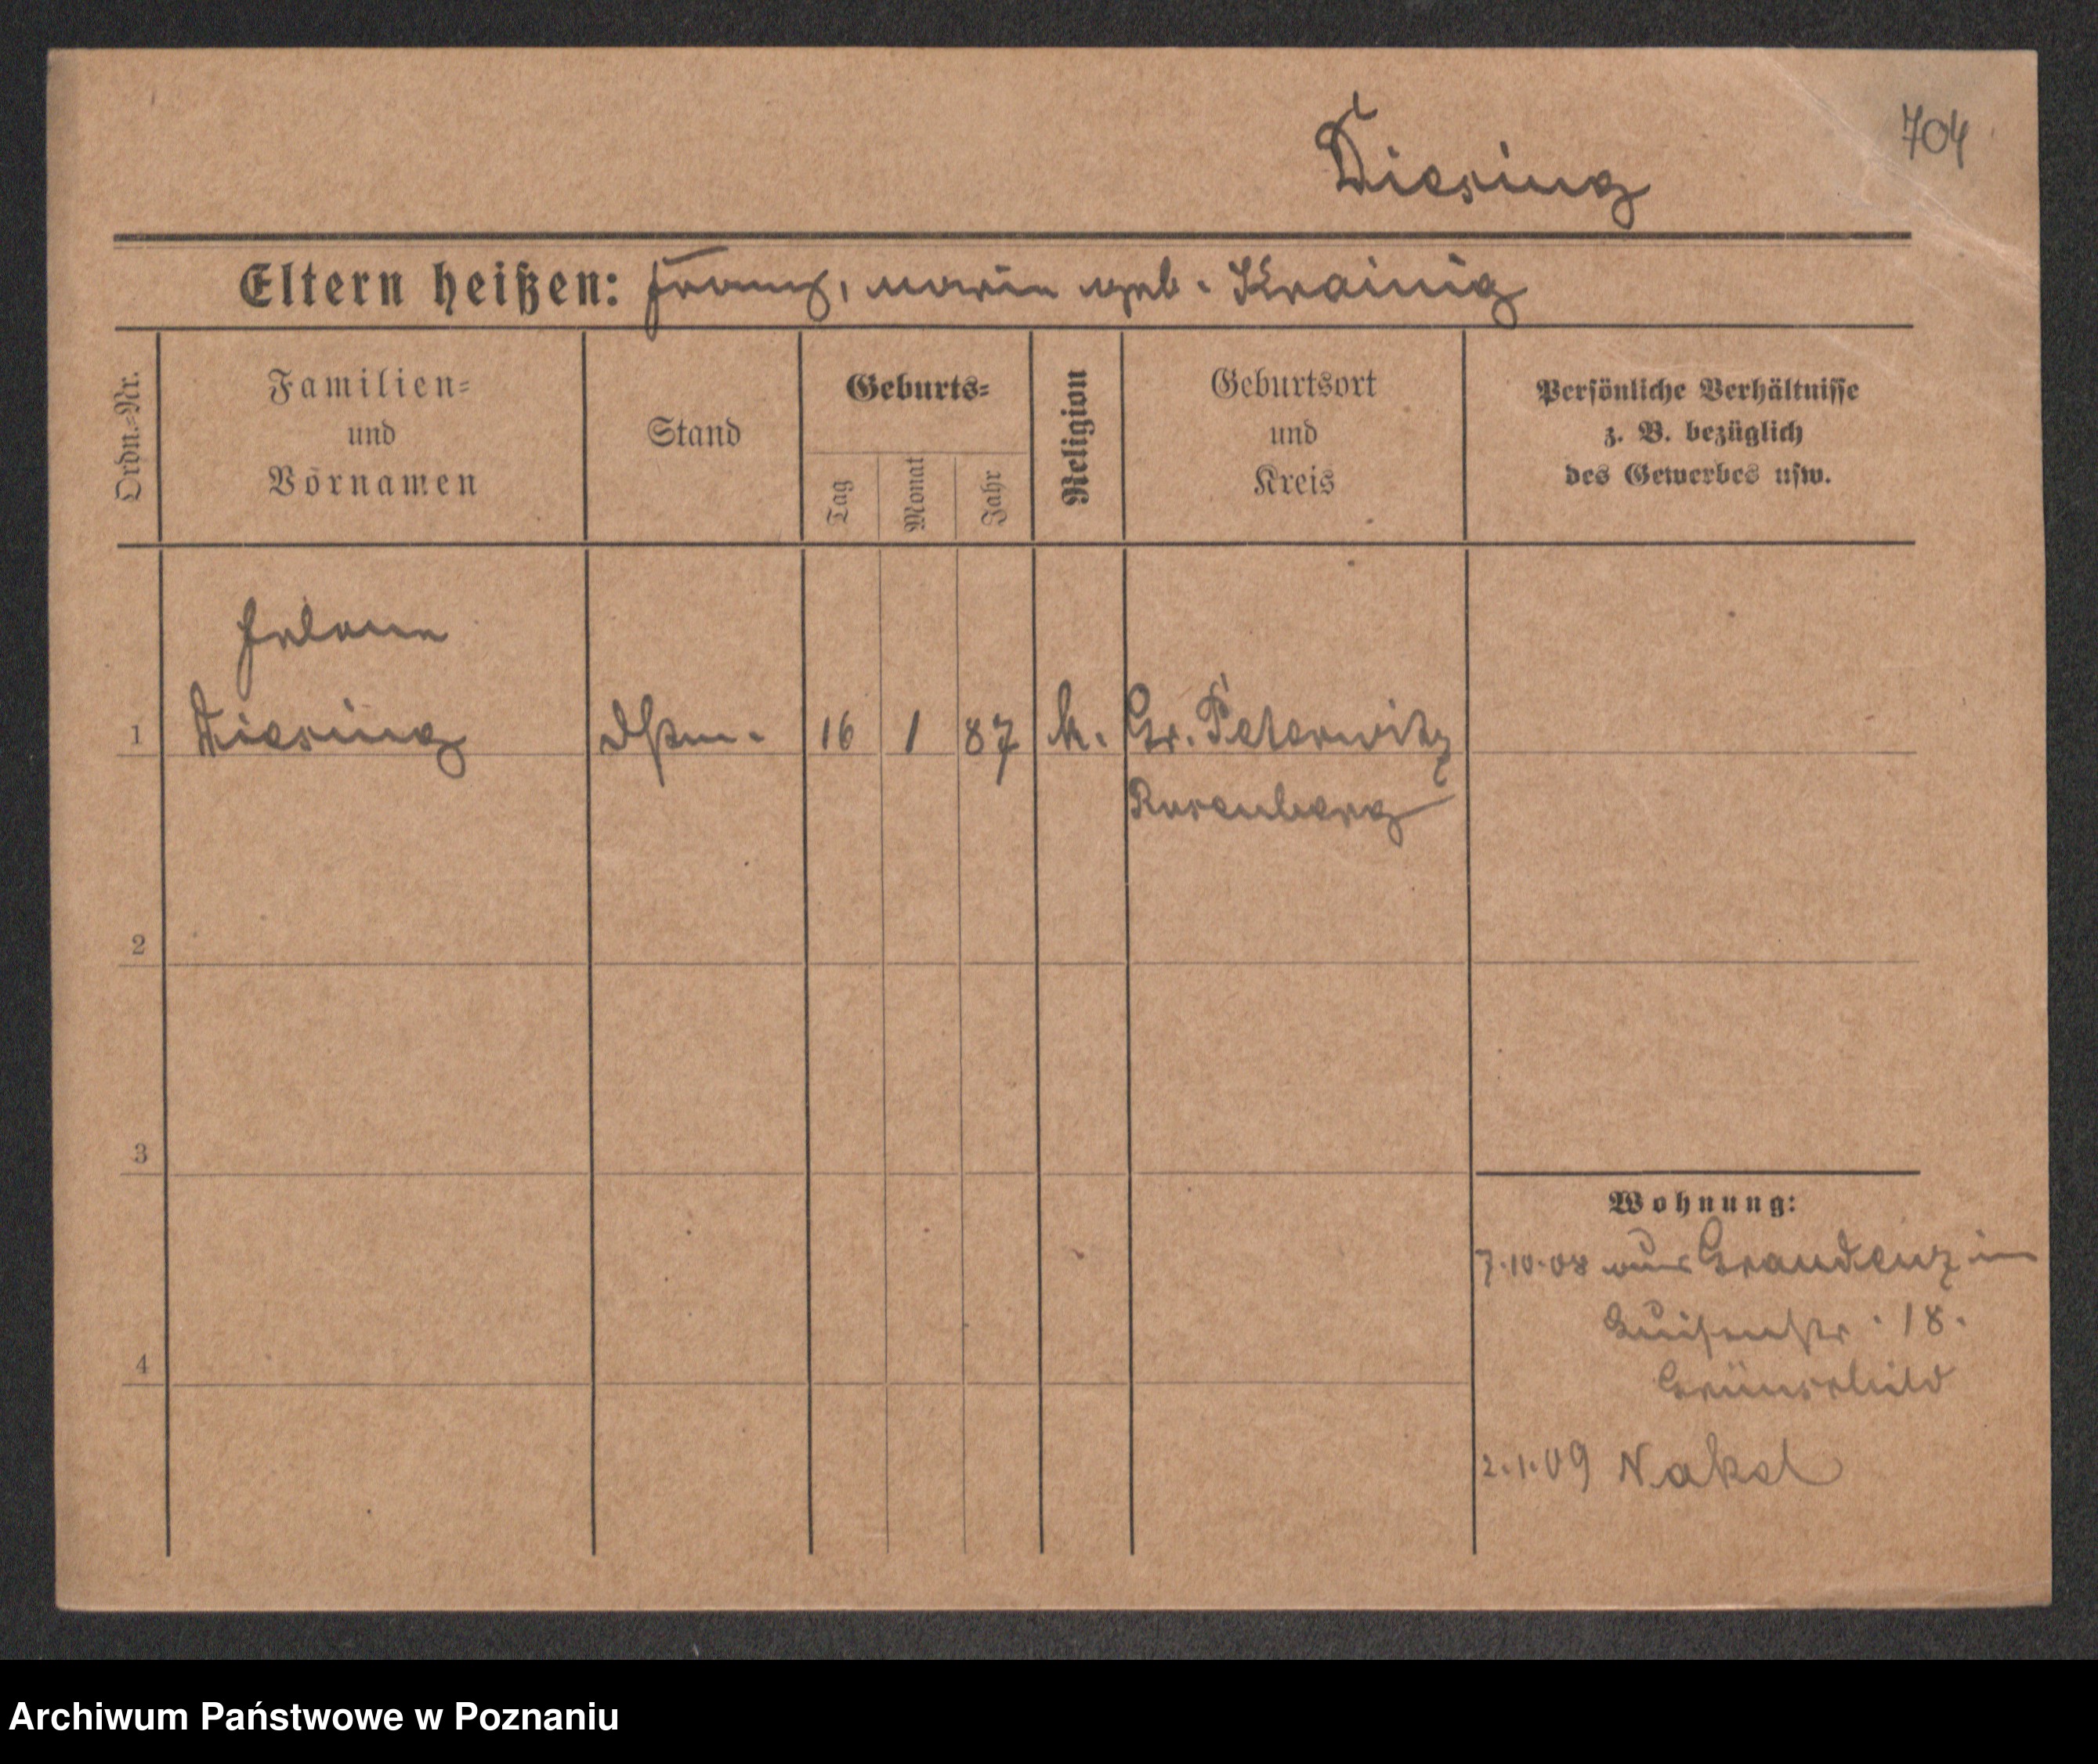 704
Diesing
Eltern heißen: Franz, Marie geb. Krainig
Ordn.=Nr.
Familien=
und
Vornamen
Stand
Geburts=
Tag
Monat
Jahr
Religion
Geburtsort
und
Kreis
Persönliche Verhältnisse
z. B. bezüglich
des Gewerbes usw.
Helene
1 Diesing 16 1 87 k. Gr. Peterwitz
Rosenberg
2
3
4
Wohnung:
7.10.08 aus Graudenz in
Luisenstr. 18.
2.1.09 Nakel
Archiwum Państwowe w Poznaniu